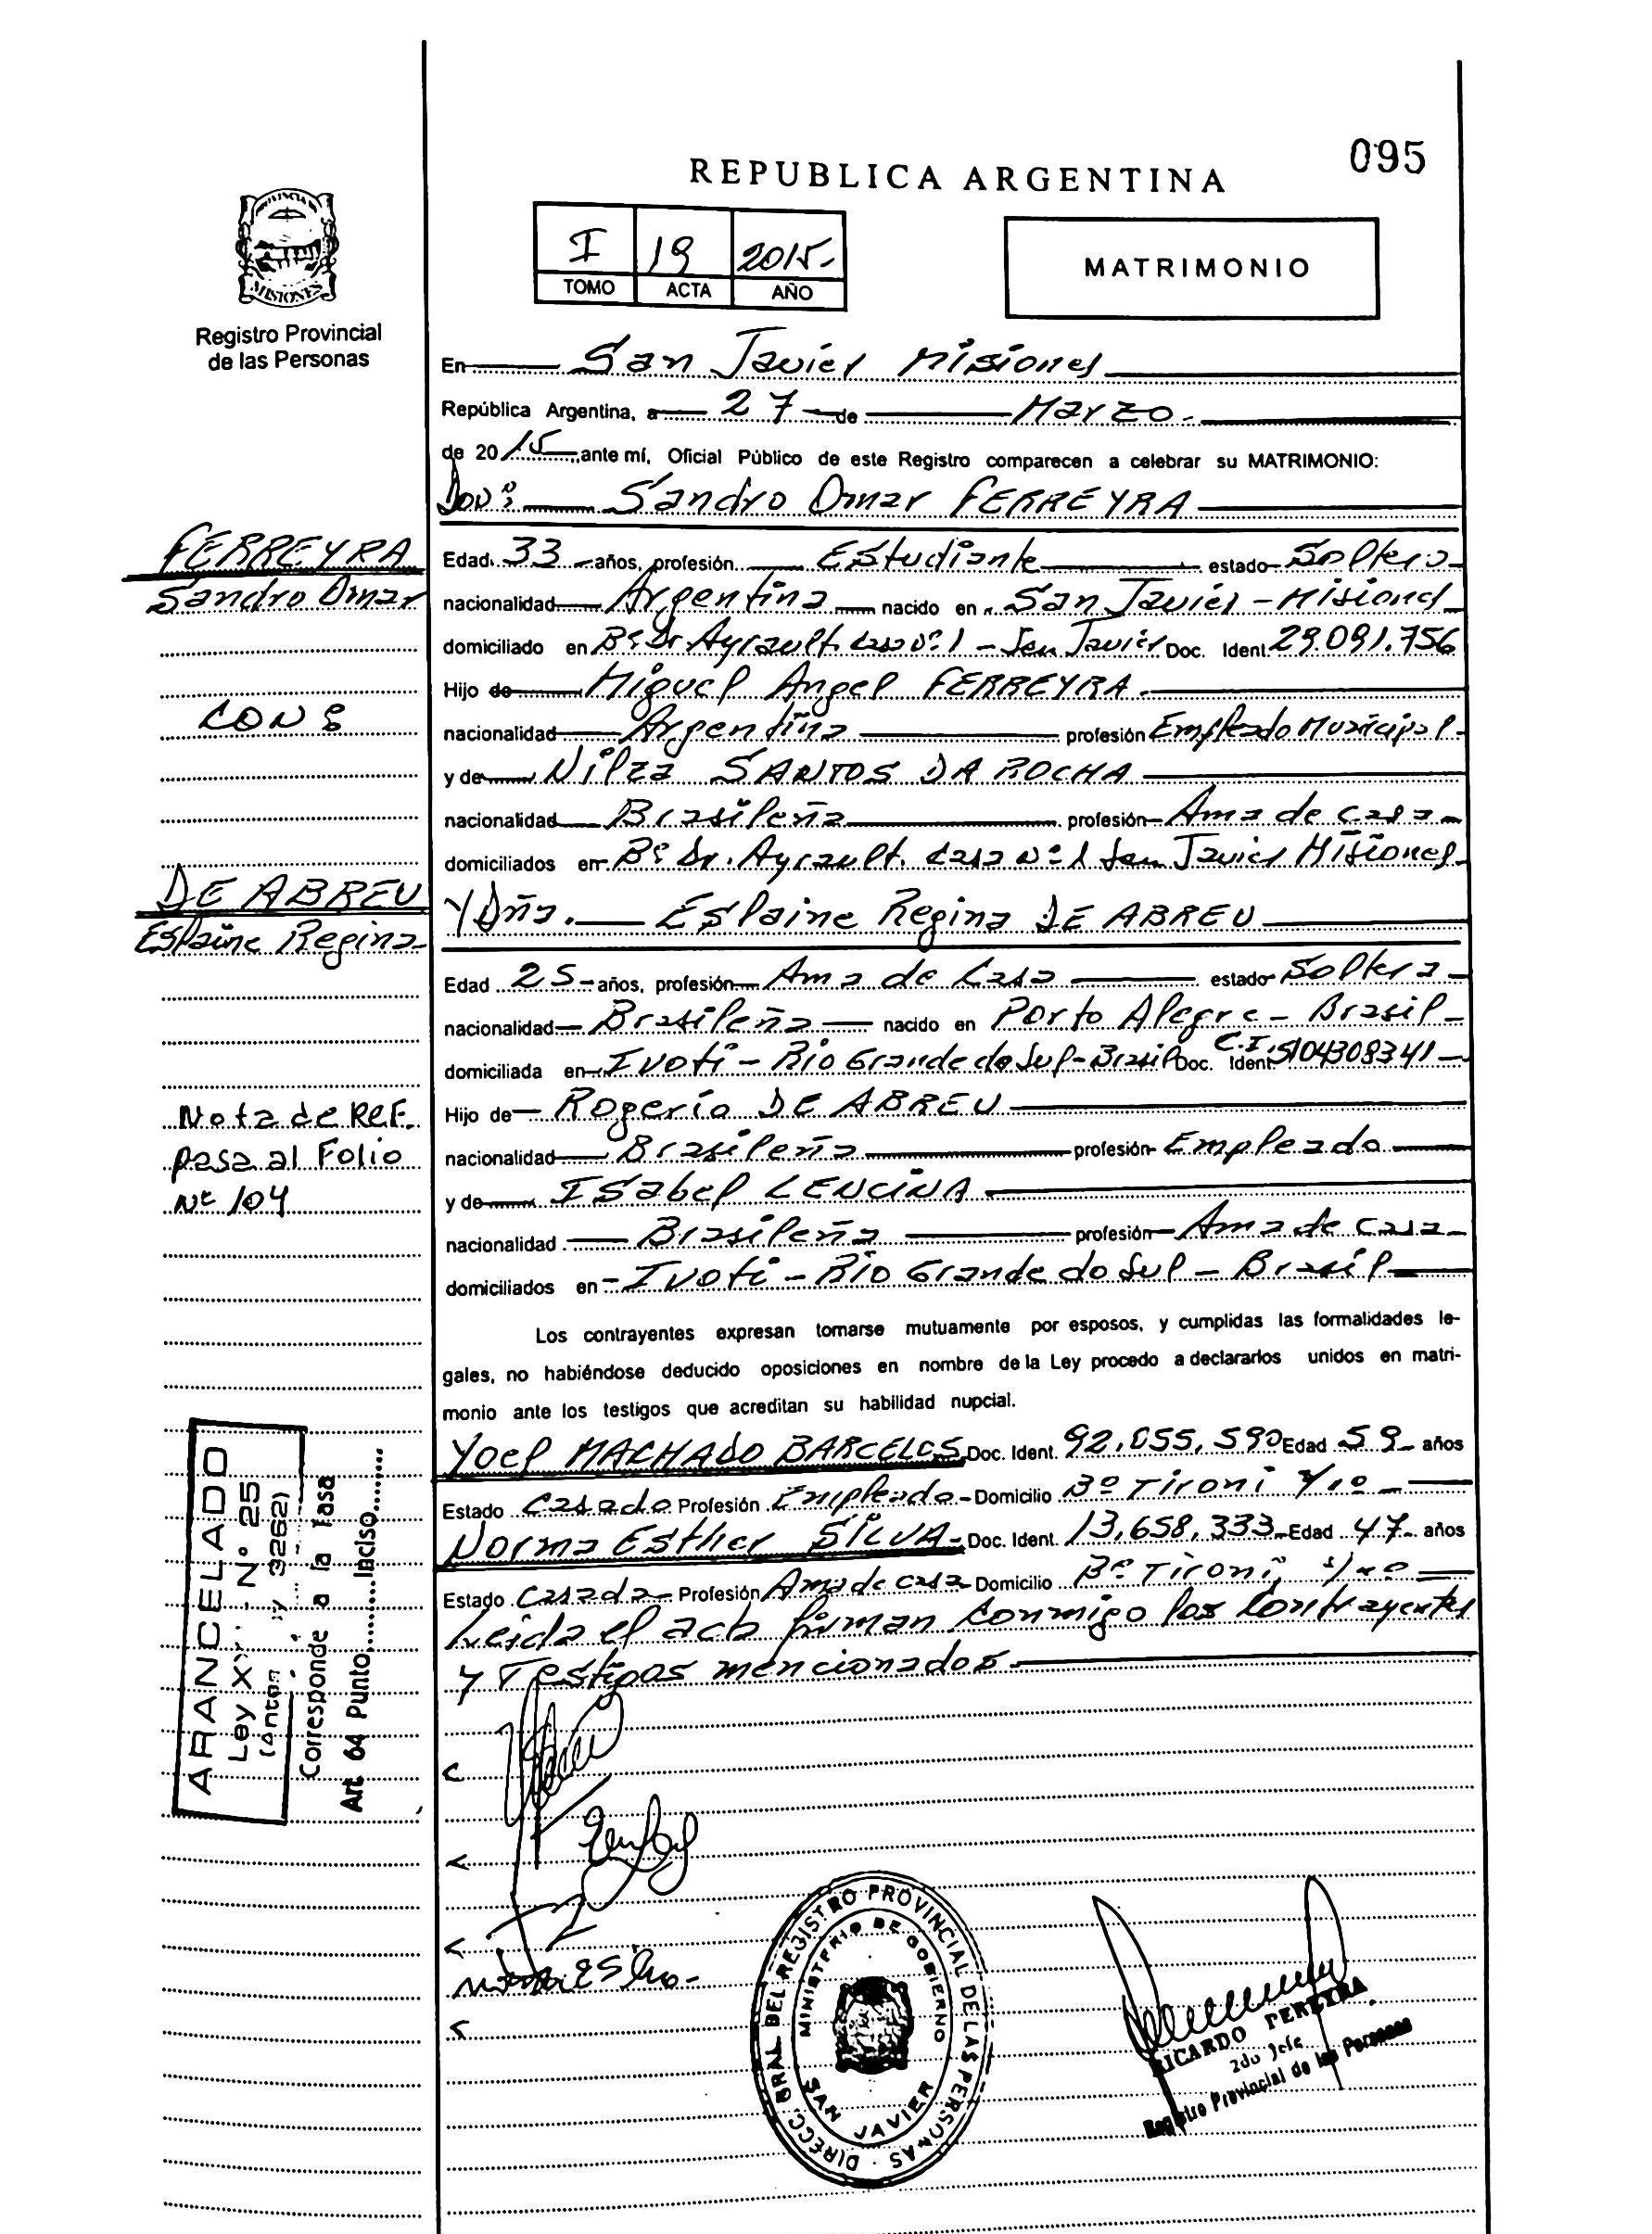 095
REPUBLICA ARGENTINA
PROVINCIA DE
MISIONES
Registro Provincial
de las Personas
I 19 2015.-
TOMO ACTA AÑO
MATRIMONIO
En San Javier Misiones
República Argentina, a 27 de Marzo.
de 2015 ante mí, Oficial Público de este Registro comparecen a celebrar su MATRIMONIO:
Don: Sandro Omar FERREYRA
FERREYRA
Sandro Omar
CON:
DE ABREU
Eslaine Regina
Nota de REF.
pasa al Folio
Nº 104
Edad 33 años, profesión Estudiante estado Soltero
nacionalidad Argentina nacido en San Javier - Misiones
domiciliado en Bº Dr Ayrault. Casa Nº 1 - San Javier Doc. Ident 29.091.756
Hijo de Miguel Angel FERREYRA.
nacionalidad Argentina profesión Empleado Municipal
y de Nilza SANTOS DA ROCHA
nacionalidad Brasileña profesión Ama de casa
domiciliados en Bº Dr. Ayrault. Casa Nº 1 San Javier Misiones
Y Dña. Eslaine Regina DE ABREU
Edad 25 años, profesión Ama de Casa estado Soltera
nacionalidad Brasileña nacido en Porto Alegre - Brasil
domiciliada en Ivoti - Rio Grande do Sul - Brasil Doc. Ident C.I. 5104308341
Hijo de Rogerio DE ABREU
nacionalidad Brasileña profesión Empleado
y de Isabel LENCINA
nacionalidad Brasileña profesión Ama de casa
domiciliados en Ivoti - Rio Grande do Sul - Brasil
Los contrayentes expresan tomarse mutuamente por esposos, y cumplidas las formalidades le-
gales, no habiéndose deducido oposiciones en nombre de la Ley procedo a declararlos unidos en matri-
monio ante los testigos que acreditan su habilidad nupcial.
Yoel MACHADO BARCELOS Doc. Ident. 92.055.590 Edad 59 años
Estado Casado Profesión Empleado Domicilio Bº Tironi
Norma Esther SILVA Doc. Ident. 13.658.333 Edad 47 años
Estado Casada Profesión Ama de casa Domicilio Bº Tironi
Leida el acta firman conmigo los Contrayentes
y Testigos mencionados
ARANCELADO
Ley Nº 25
3262)
Corresponde a la Tasa
Art. 64 Punto..........Inciso........
DIRECC. GRAL. DEL REGISTRO PROVINCIAL DE LAS PERSONAS
MINISTERIO DE GOBIERNO
SAN JAVIER
RICARDO PEREYRA
2do Jefe
Registro Provincial de las Personas